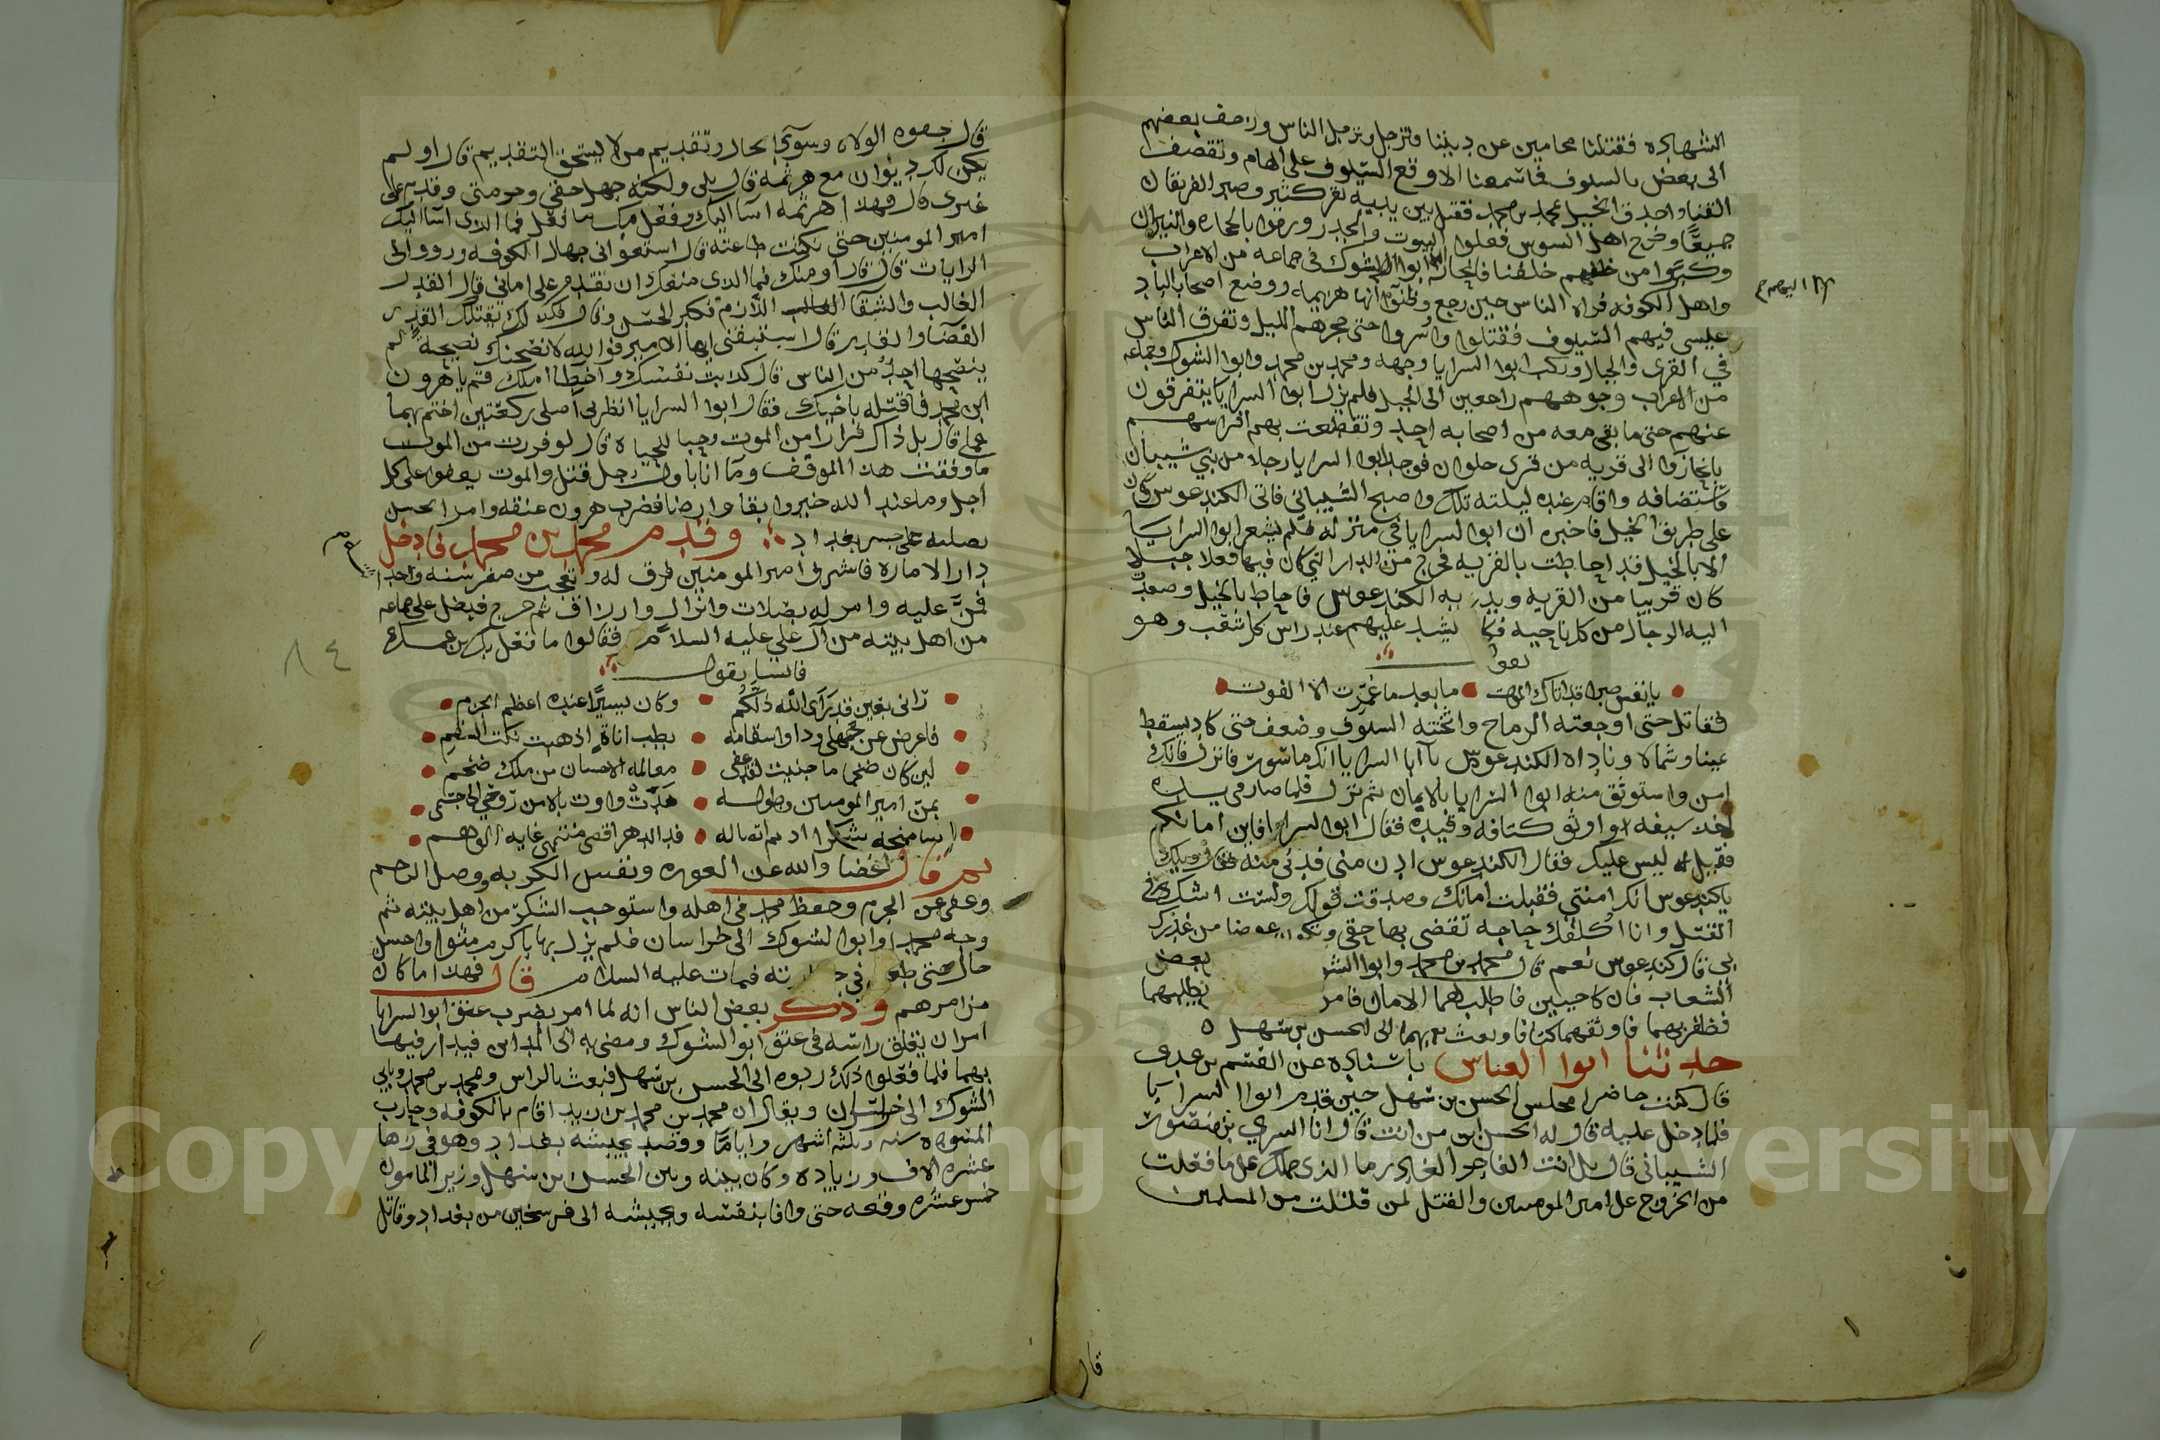 الشهاده فقتلنا محامين عن ديننا وترجل وترجل الناس وزحف بعضهم
الى بعض بالسيوف فما سمعنا الا وقع السيوف على الهام وتقصف
القنا واحدق الخيل بمحمد بن محمد فقتل بين يديه نفر كثير وصبر الفريقان
جميعًا وخرج اهل السوس فعلوا البيوت والجدر ورموا بالحجاره والنيران
وكبروا من خلفهم خلفنا فانحاز ابوا الشوك في جماعه من الاعراب
واهل الكوفه فراه الناس حين رجع وظنوا انها هزيمه ووضع اصحاب الباد
عيسى فيهم السيوف فقتلوا واسروا حتى حجزهم الليل وتفرق الناس
في القرى والجبال وركب ابوا السرايا وجهه ومحمد بن محمد وابوا الشوك وجماعه
من الاعراب وجوههم راجعين الى الجبل فلم يزل ابوا السرايا يتفرقون
عنهم حتى ما بقى معه من اصحابه احد وتقطعت بهم افراسهم
فانحازوا الى قريه من قرى حلوان فوجد ابوا السرايا رجلا من بني شيبان
فاستضافه واقام عنده ليلته تلك واصبح الشيباني فاتى الكندغوس وكان
على طريق الخيل فاخبره ان ابوا السرايا في منزله فلم يشعر ابوا السرايا
الا بالخيل قد احاطت بالقريه فخرج من الدار التي كان فيها فعلا جبلا
كان قريبا من القريه ويدر به الكندغوس فاحاط بالخيل وصعد
اليه الرجال من كل ناحيه فكا يشد عليهم عند راس كل شقب وهو
يقول
يا نفس صبرا قد اتاك الموت ما بعد ما عمرت الا الفوت
فقاتل حتى اوجعته الرماح واثخنته السيوف وضعف حتى كاد يسقط
يمينا وشمالا وناداه الكندغوس يا ابا السرايا انك ماسور فانزل فانك
امن واستوثق منه ابوا السرايا بالايمان ثم نزل فلما صار في يده
اخذ سيفه واوثق كتافه وقيده فقال ابوا السرايا فاين امانكم
فقيل له ليس عليك فقال الكندغوس ادن مني فدنى منه فقال ويلك
يا كندغوس انك امنتني فقبلت امانك وصدقت قولك ولست اشك في
القتل وانا اكلفك حاجه تقضي بها حقي وتكون عوضا من غدرك
بي قال كندغوس نعم قال محمد بن محمد وابوا الشو بعض
الشعاب فان كا حيين فاطلب لهما الامان فامر يطلبهما
فظفر بهما فاوثقهما كتافا وبعث بهما الى الحسن بن سهل ٥
حدثنا ابوا العباس باسناده عن القسم بن عدى
قال كنت حاضرا مجلس الحسن بن سهل حين قدم ابوا السرايا
فلما دخل عليه قال له الحسن ابن من انت قال انا السري بن منصور
الشيباني قال بل انت الفاجر الغادر ما الذى حملك على ما فعلت
من الخروج على امير المومنين والقتل لمن قتلت من المسلمين
قال
قال جفوه الولاه وسوء الحال وتقديم من لا يستحق التقديم قال اولم
يكن لك ديوان مع هرثمه قال بلى ولكنه جهل حقي وحرمتي وقدم على
غيري قال فهلا اهرثمه اسا اليك وفعل بك ما فعل فما الذى اسا اليك
امير المومنين حتى نكثت طاعته قال استغوانى جهال الكوفه وردوا الى
الرايات قال قال ومنك فما الذى منعك ان تقدم على امانى قال القدر
الغالب والشقا اللازم فكبر الحسن وقال فكذلك تقتلك القدر
القضا والقدر قال استبقني ايها الامير فوالله لانصحنك نصيحة لم
ينصحها احد من الناس قال كذبت نفسك واخطا املك قم يا هرون
ابن محمد فاقتله باخيك فقال ابوا السرايا انظرني اصلى ركعتين اختم بهما
عملي قال بل ذاك فرارا من الموت وحبا للحياه قال لو فررت من الموت
ما وقفت هذا الموقف وما انا باول رجل قتل والموت يعفو على كل
اجل وما عند الله خير وابقا وارضا فضرب هرون عنقه وامر الحسن
بصلبه على جسر بغداد وقدم محمد بن محمد فادخل
دار الامارة فاشرف امير المومنين فرق له وتعجب من صغر سنه واحدا
فمن عليه وامر له بصلات وانزال وارزاق ثم خرج فدخل على جماعه
من اهل بيته من ال علي عليه السلام فقالوا ما فعل بك ابن عمك
فانشا يقول
راني بعين قد يرى الله ذلكم وكان يسيرًا عنده اعظم الجرم
فاعرض عن جهلي وداوا سقامه بطب اناة اذهبت نكت السقم
لين كان ضخما ما جنيت لقد عفى معالمه الاحسان من ملك ضخم
بمن امير المومنين وطوله هدت واوت بالامن روحي الى جسمي
شكرا فدا الدهر اقصى منتهى غايه الوهم
ثم قال اغضا والله عن العوره ونفس الكربه ووصل الرحم
وعفى عن الجرم وحفظ محمد في اهله واستوجب الشكر من اهل بيته ثم
وجه محمد وابوا الشوك الى خراسان فلم يزل بها باكرم مثوا واحسن
حال حتى فمات عليه السلام قال فهذا ما كان
من امرهم وذكر بعض الناس انه لما امر بضرب عنق ابوا السرايا
امر ان يعلق راسه في عنق ابوا الشوك ومضى به الى المداين فيدار فيها
بهما فلما فعلوا ذلك ردوه الى الحسن بن سهل فبعث بالراس ومحمد بن محمد وبابي
الشوك الى خراسان ويقال ان محمد بن محمد بن زيد اقام بالكوفه وحارب
المسوده سنه وثلثه اشهر واياما وقصد بجيشه بغداد وهو في زها
عشره الاف وزياده وكان بينه وبين الحسن بن سهل وزير المامون
خمس عشره وقعه حتى وافا بنفسه وبجيشه الى فرسخين من بغداد وقاتل
٨٤
Copy ng S ersity